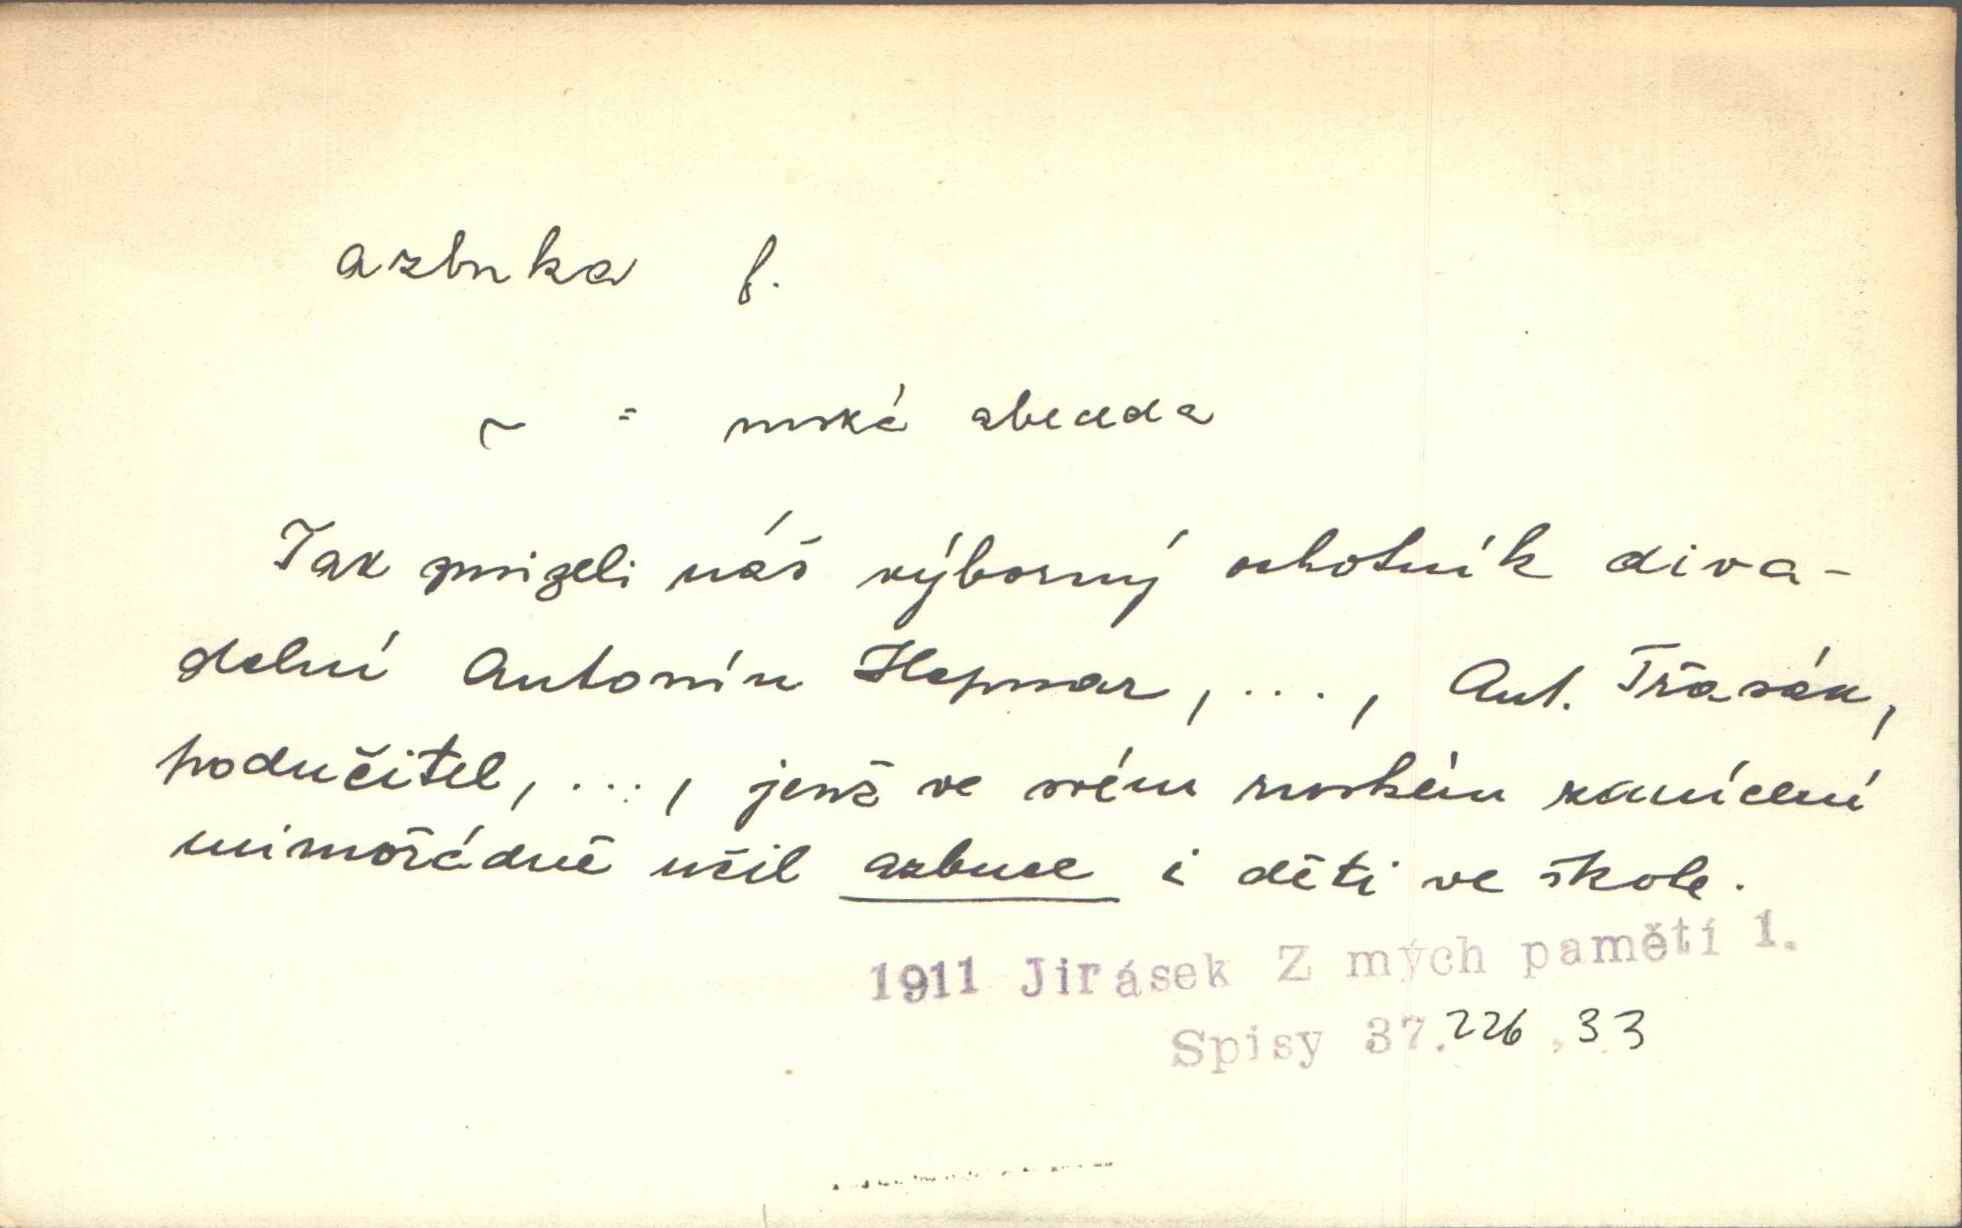 azbuka f.
~ = ruská abeceda
Tak zmizeli náš výborný ochotník diva-
delní Antonín Hepnar, ..., Ant. Třasák,
podučitel, ..., jenž ve svém ruském zanícení
mimořádně učil azbuce i děti ve škole.
1911 Jirásek Z mých pamětí 1.
Spisy 37.226,33